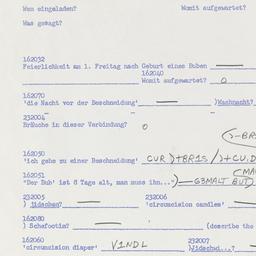 Wen eingeladen? Womit aufgewartet?
Was gesagt?
162032
Feierlichkeit am 1. Freitag nach Geburt eines Buben
162040
Womit aufgewartet? 0
162070
'die Nacht vor der Beschneidung' )Wachnacht?
232004
Bräuche in dieser Verbindung? 0
)-BR
162050
'ich gehe zu einer Beschneidung' CUR )+BR1S /)+CU.D
162051 (MA
"Der Bub' ist 8 Tage alt, man muss ihn...) G3MALT BUT)
232005 232006
) Jidschen? 'circumcision candles'
162080
) Schefootim? (describe the
162060 232007
'circumcision diaper' V1NDL )Jidschwi..?